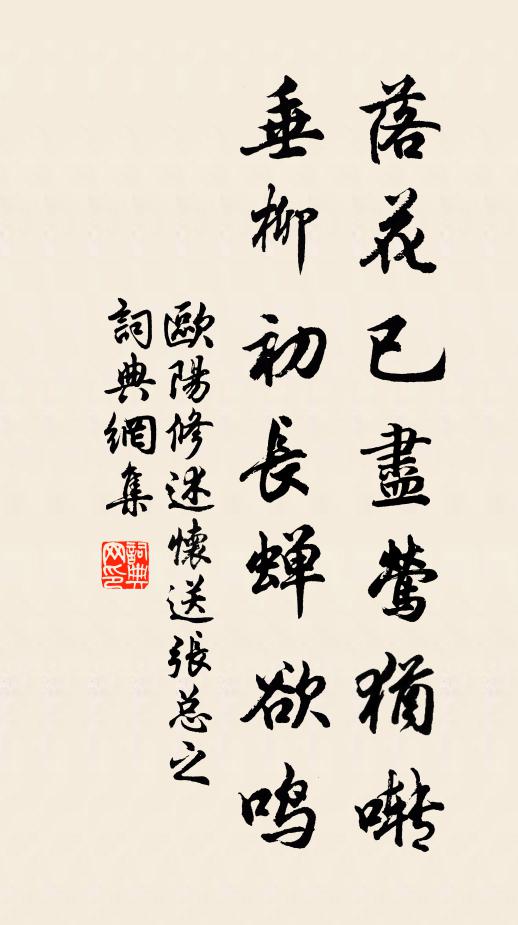 落花已盡莺猶啭
垂柳初長蝉欲鸣
歐陽修述懷送張总之
詞典網集
詞典网印